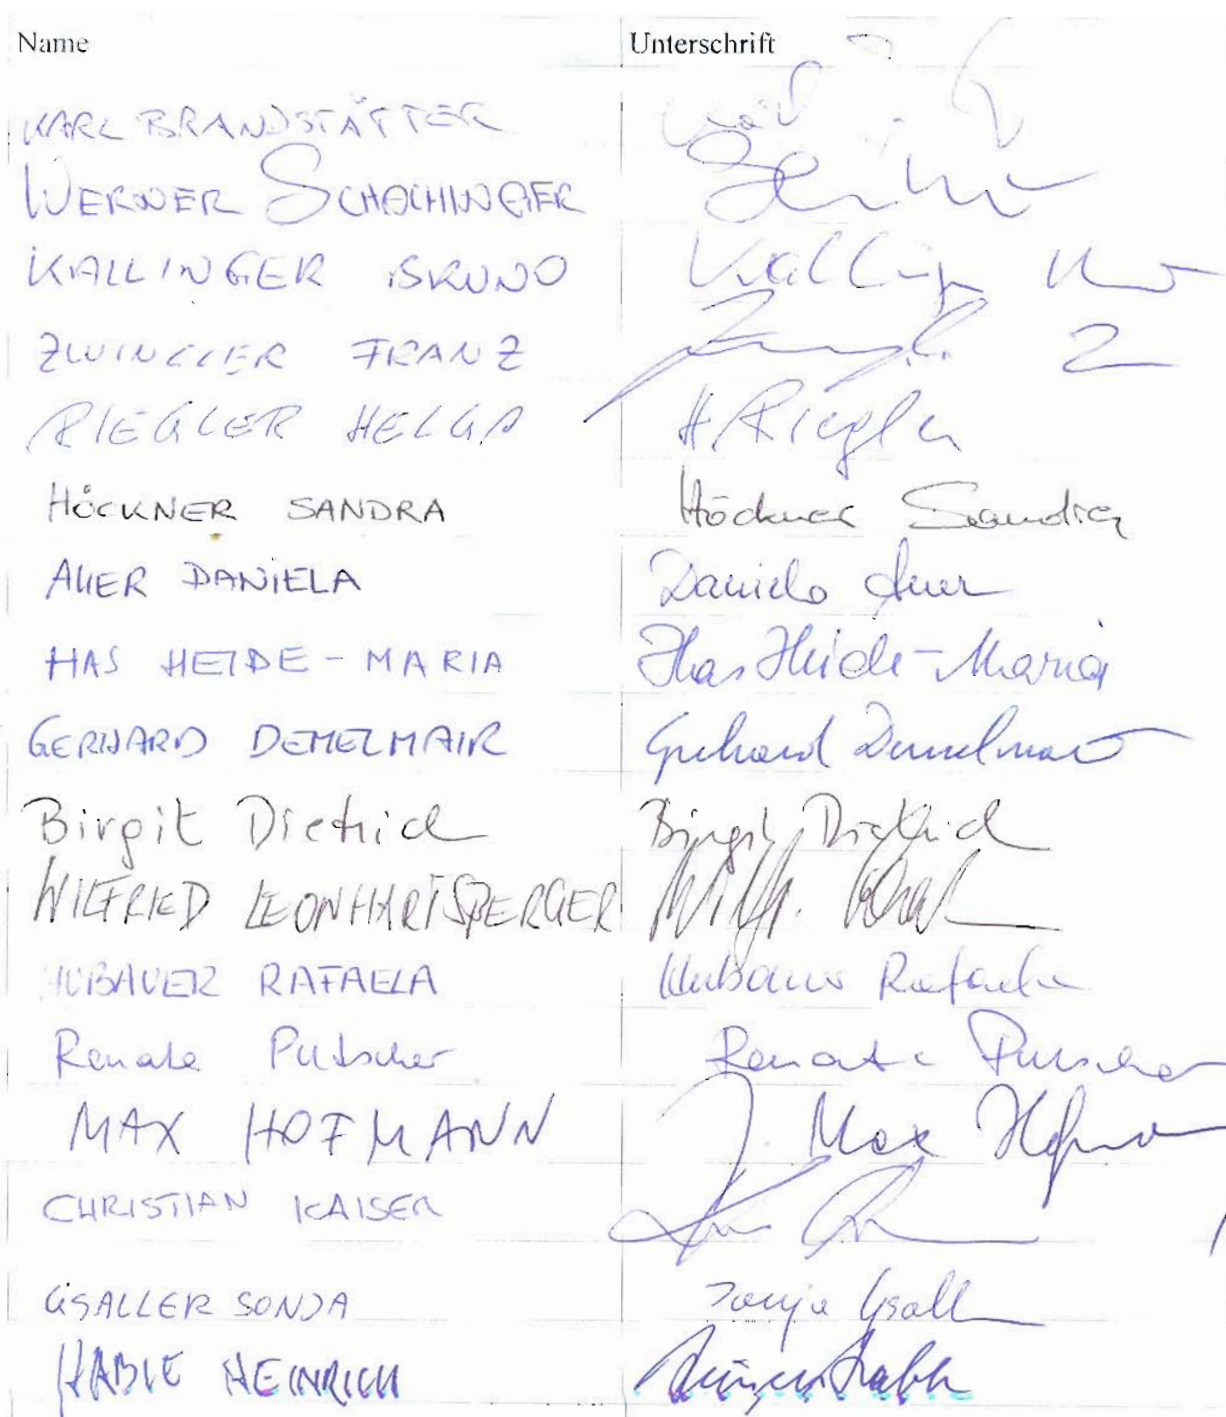 Name Unterschrift
KARL BRANDSTÄTTER
WERNER SCHACHINGER
KALLINGER BRUNO Kalling
ZWINGLER FRANZ
RIEGLER HELGA H. Riegler
HÖCKNER SANDRA Höckner Sandra
AUER DANIELA Daniela Auer
HAS HEIDE-MARIA Has Heide-Maria
GERHARD DEMELMAIR Gerhard Demelmair
Birgit Dietrich Birgit Dietrich
WILFRIED LEONHARTSBERGER
HUBAUER RAFAELA Hubauer Rafaela
Renate Putscher Renate Putscher
MAX HOFMANN J. Max Hofmann
CHRISTIAN KAISER
GSALLER SONJA Sonja Gsaller
HABLE HEINRICH Heinrich Hable